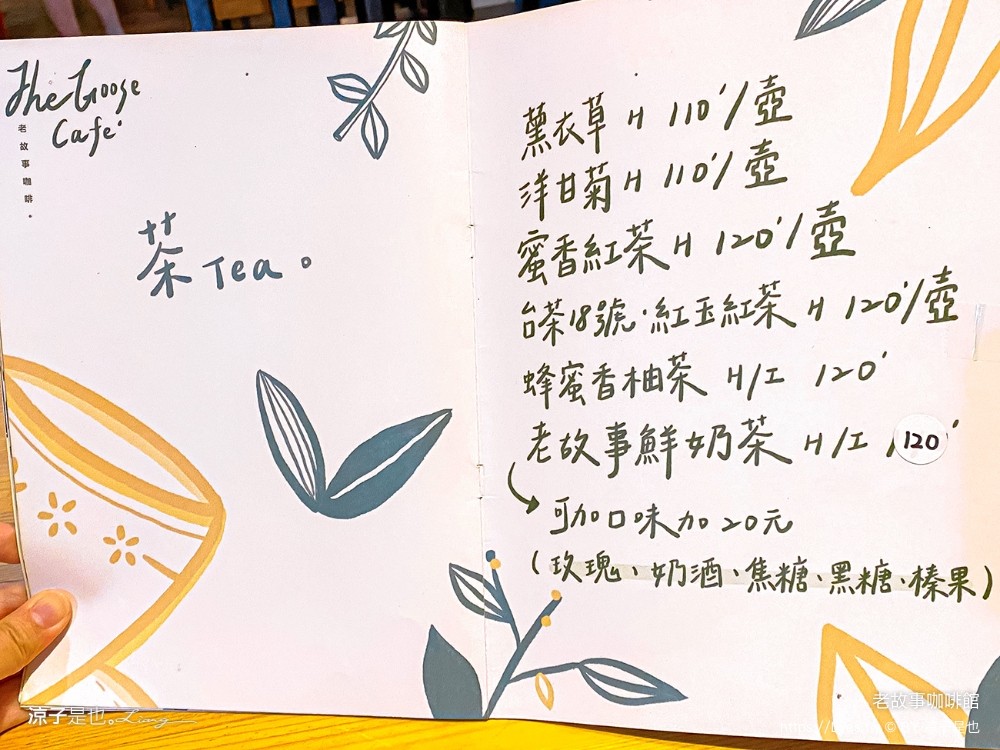 The Goose
Café
老故事咖啡。
茶 Tea。
薰衣草 H 110'/壺
洋甘菊 H 110'/壺
蜜香紅茶 H 120'/壺
台茶18號·紅玉紅茶 H 120'/壺
蜂蜜香柚茶 H/I 120'
老故事鮮奶茶 H/I 120'
可加口味加20元
(玫瑰、奶酒、焦糖、黑糖、榛果)
涼子是也。Ling
老故事咖啡館